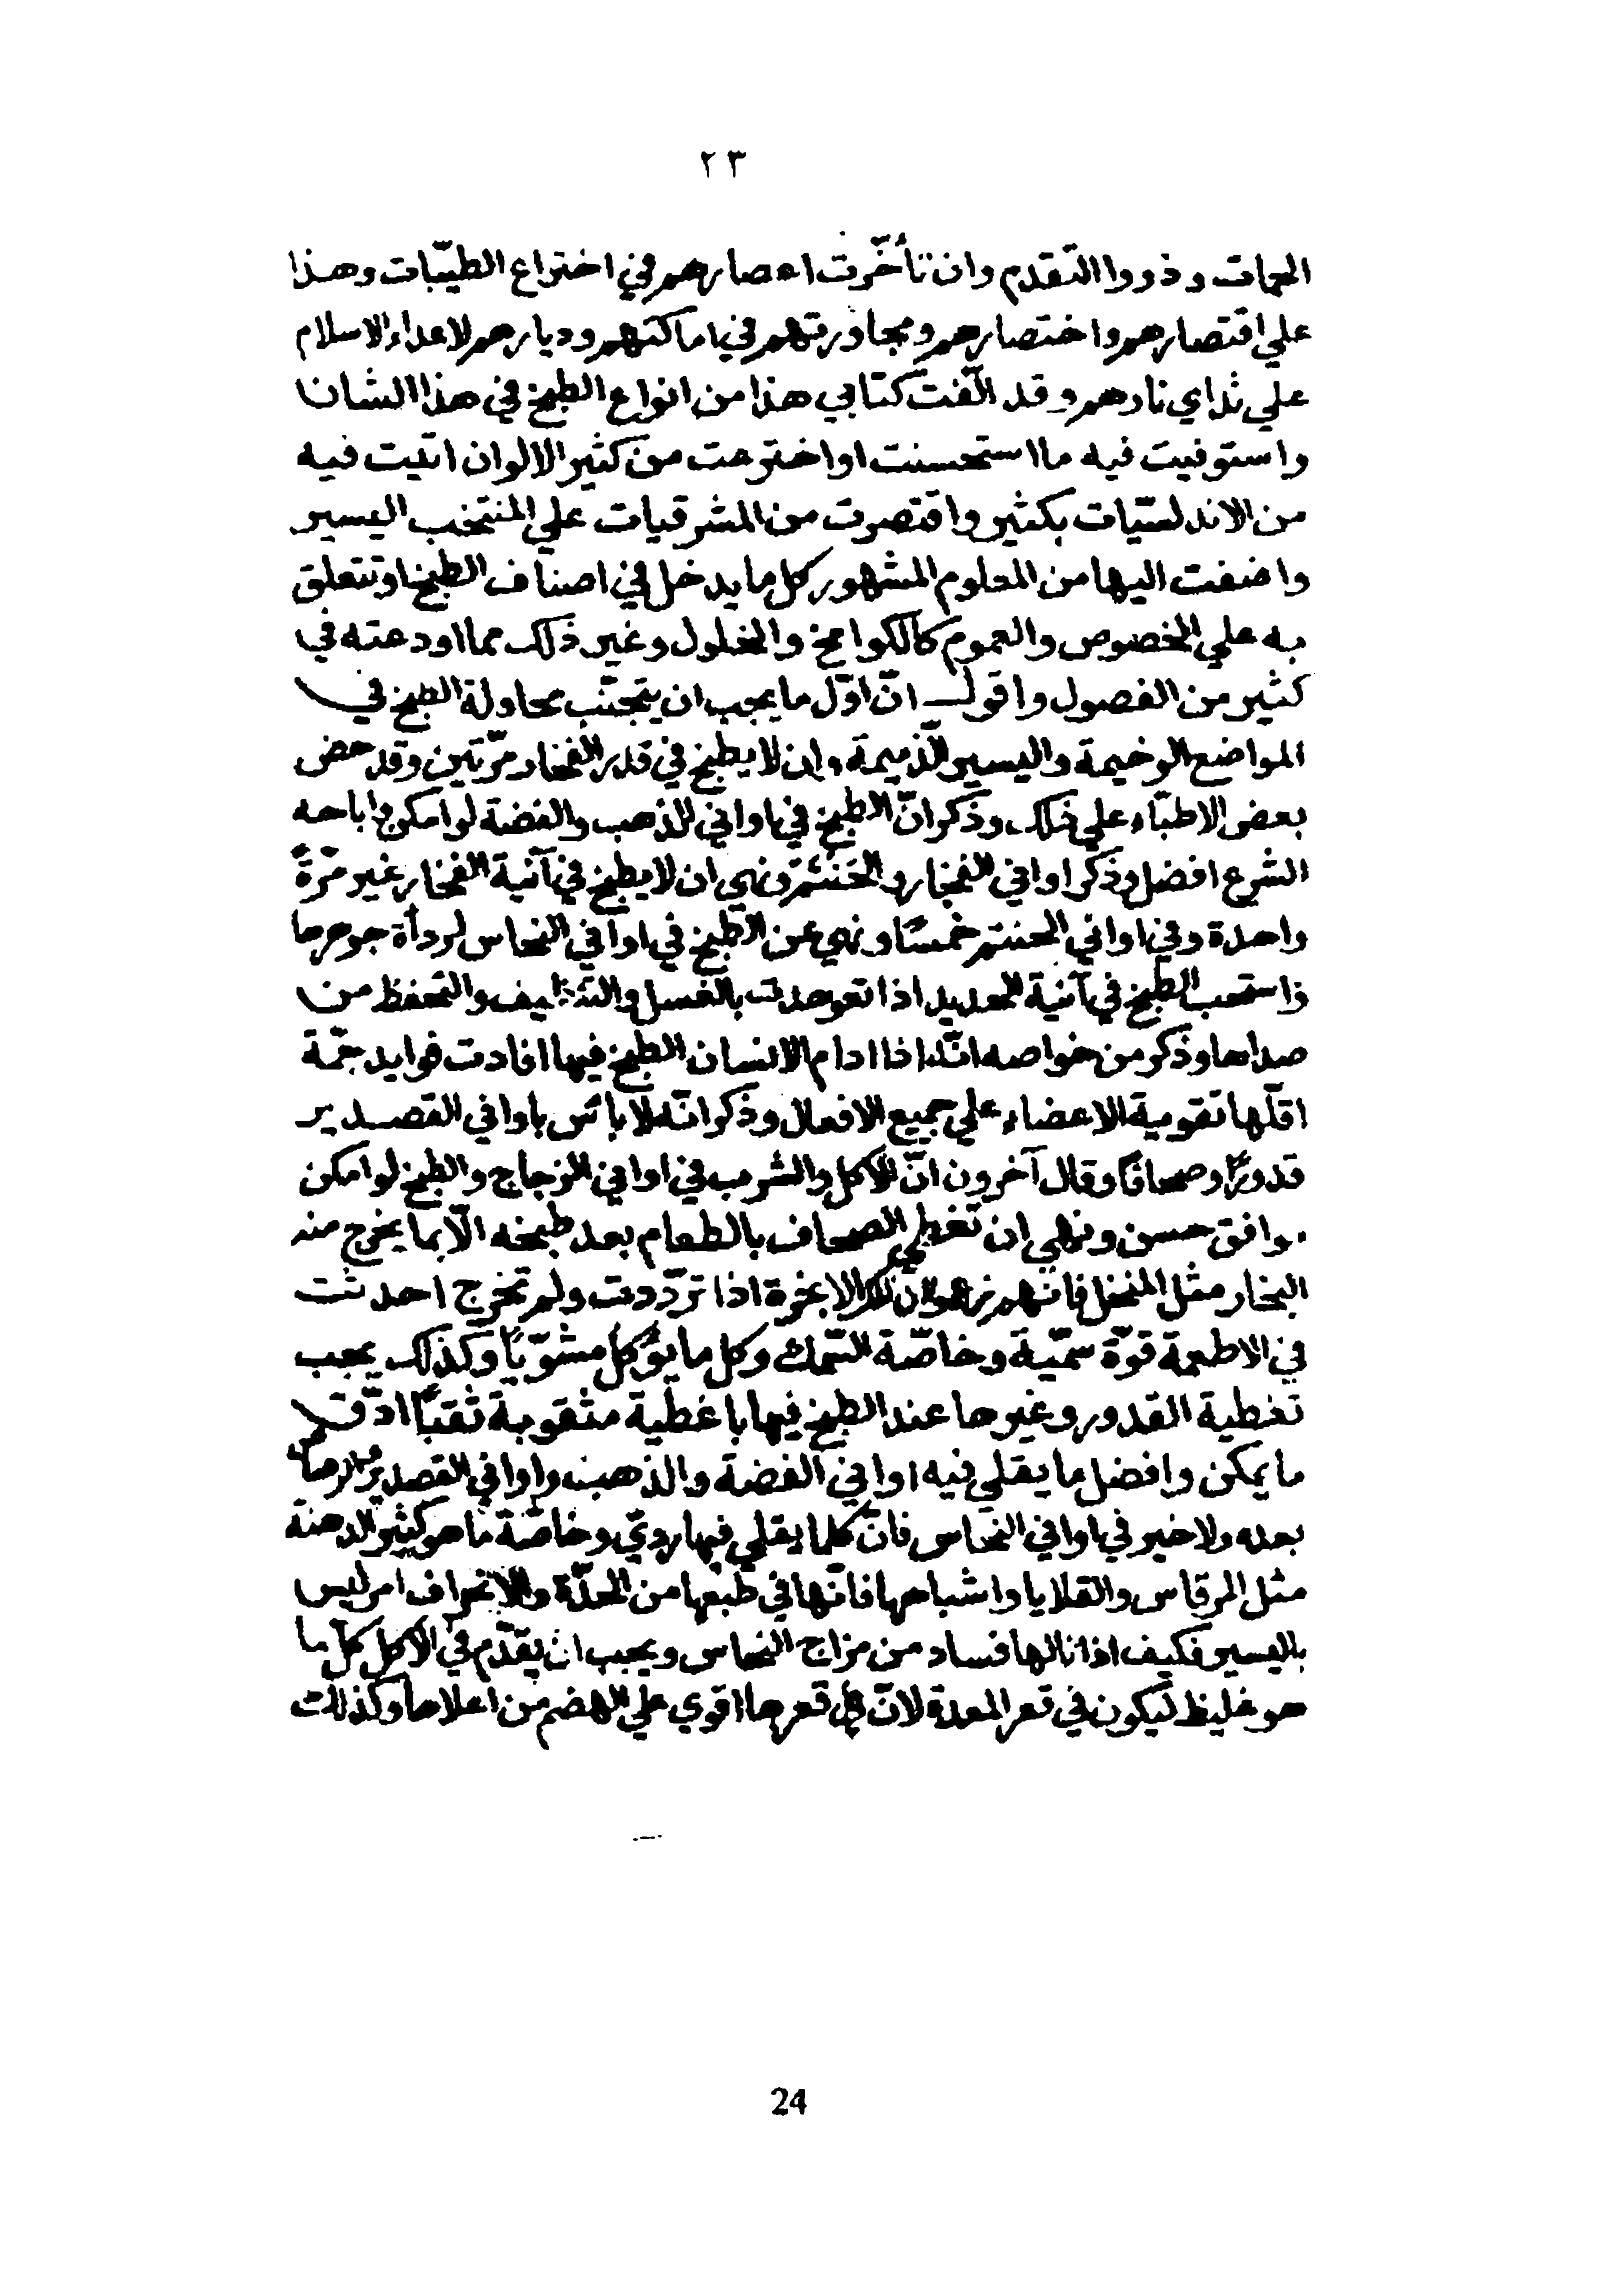 ٢٣
المهمات وذووا التقدم وان تأخّرت اعصارهم في اختراع الطيّبات وهذا
علي اقتصارهم واختصارهم ومجاورتهم في اماكنهم وديارهم لاعداء الاسلام
علي تداي نارهم وقد الّفت كتابي هذا من انواع الطبخ في هذا الشان
واستوفيت فيه ما استحسنت او اخترعت من كثير الالوان اتيت فيه
من الاندلسيّات بكثير واقتصرت من المشرقيات علي المنتخب اليسير
واضفت اليها من المعلوم المشهور كل ما يدخل في اصناف الطبخ او تتعلق
به علي الخصوص والعموم كالكوامخ والخلول وغير ذلك مما اودعته في
كثير من الفصول واقول انّ اوّل ما يجب ان يتجنّب محاولة الطبخ في
المواضع الوخيمة واليسير الذميمة وان لا يطبخ في قدر الفخار مرّتين وقد حض
بعض الاطبّاء علي ذلك وذكر انّ الطبخ في اواني الذهب والفضة لو امكن واباحه
الشرع افضل وذكر اواني الفخار والحَنتَم ونهي ان لا يطبخ في آنية الفخار غير مرّةً
واحدة وفي اواني الحنتم خمسًا ونهي عن الطبخ في اواني النحاس لردأة جوهرها
فاستحب الطبخ في آنية الحديد اذا تعوهدت بالغسل والتنظيف والتحفظ من
صداها وذكر من خواصه انّه اذا ادام الانسان الطبخ فيها افادت فوايد جمّة
اقلّها تقوية الاعضاء علي جميع الافعال وذكر انّه لا بأس باواني القصدير
قدورًا وصحافًا وقال آخرون انّ الاكل والشرب في اواني الزجاج والطبخ لو امكن
موافق حسن ونهي ان تغطي الصحاف بالطعام بعد طبخه الّا بما يخرج منه
البخار مثل المنخل فانّهم زعموا ان تلك الابخرة اذا تردّدت ولم تخرج احدثت
في الاطعمة قوّة سمّية وخاصّة السّمك وكل ما يؤكل مشويًّا وكذلك يجب
تغطية القدور وغيرها عند الطبخ فيها باغطية مثقوبة ثقبًا ادّق
ما يمكن وافضل ما يقلي فيه اواني الفضة والذهب واواني القصدير
بعده ولا خير في اواني النحاس فانّ كلما يقلي فيها رديّ وخاصّة ما هو كثير الدهنة
مثل المرقاس والقلايا واشباهها فانّها في طبعها من الحدّة والانحراف امر ليس
باليسير فكيف اذا نالها فساد من مزاج النحاس ويجب ان يقدّم في الاكل كلّ ما
هو غليظ ليكون في قعر المعدة لانّ قعرها اقوي علي الهضم من اعلاها وكذلك
24